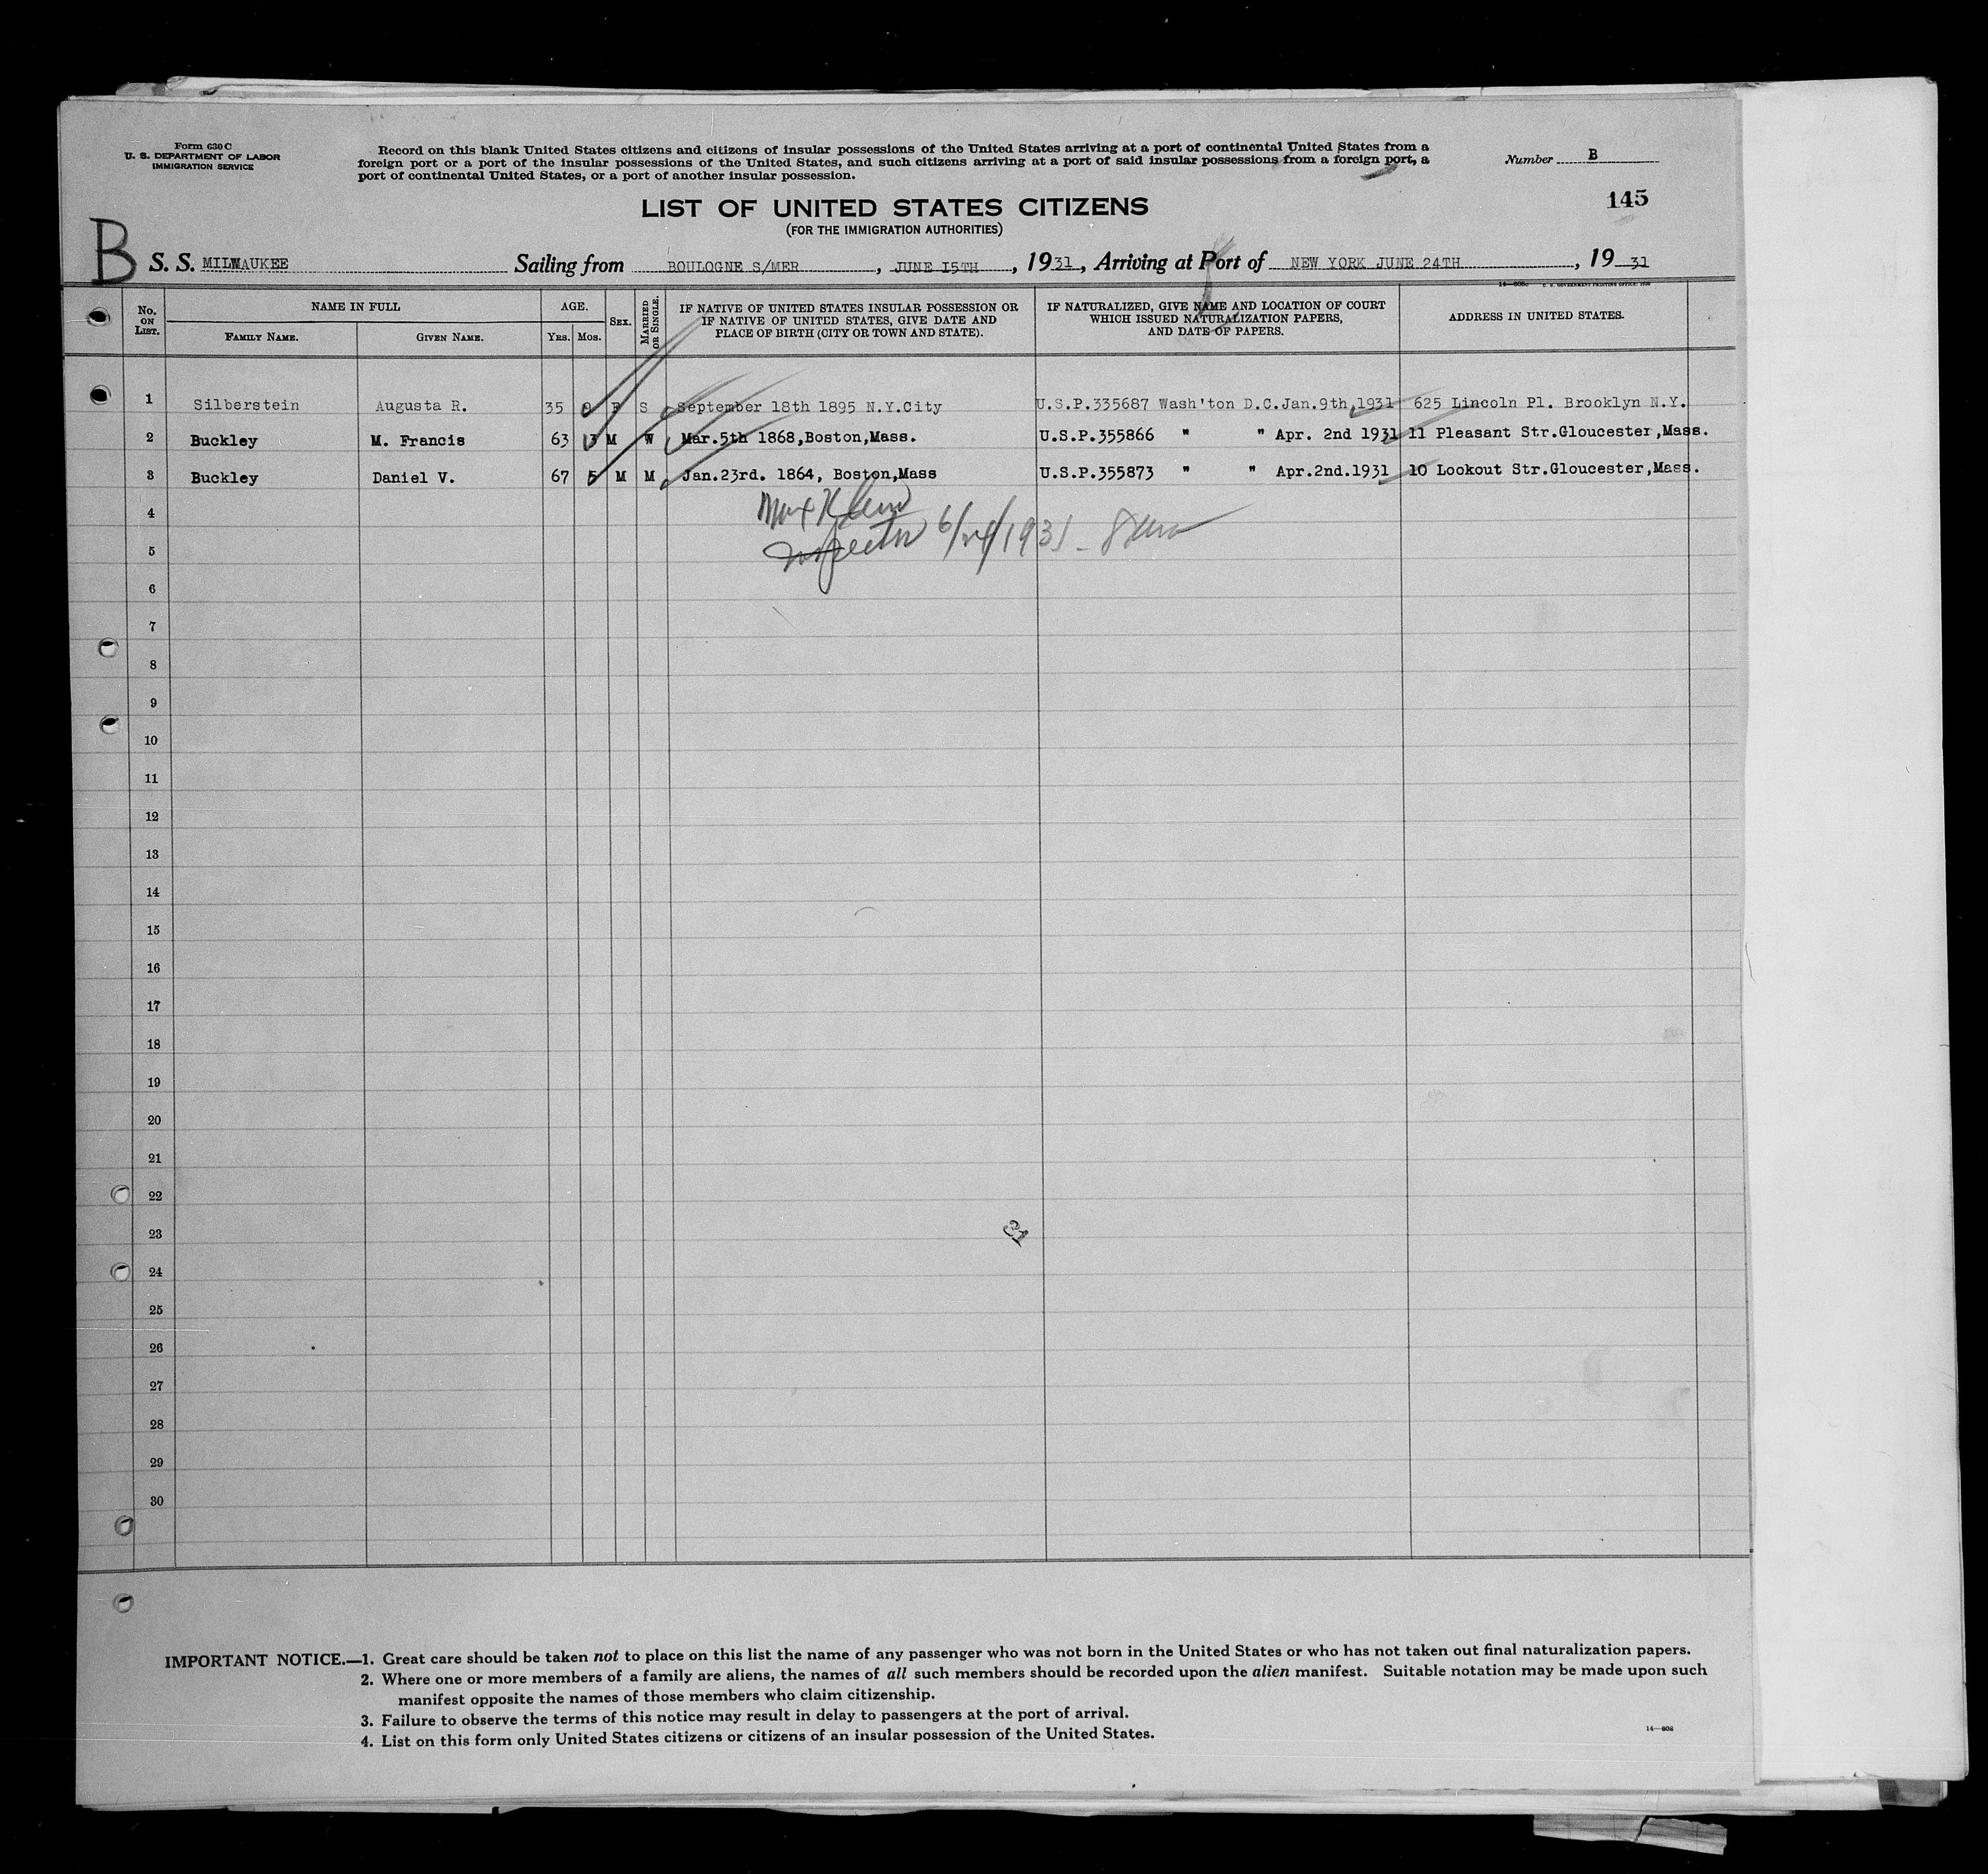 Form 630 C
U. S. DEPARTMENT OF LABOR
IMMIGRATION SERVICE
Record on this blank United States citizens and citizens of insular possessions of the United States arriving at a port of continental United States from a
foreign port or a port of the insular possessions of the United States, and such citizens arriving at a port of said insular possessions from a foreign port, a
port of continental United States, or a port of another insular possession.
Number B
145
LIST OF UNITED STATES CITIZENS
(FOR THE IMMIGRATION AUTHORITIES)
B S. S. MILWAUKEE Sailing from BOULOGNE S/MER , JUNE 15TH , 19 31 , Arriving at Port of NEW YORK JUNE 24TH , 19 31
No. ON LIST. NAME IN FULL AGE. SEX. MARRIED OR SINGLE. IF NATIVE OF UNITED STATES INSULAR POSSESSION OR IF NATIVE OF UNITED STATES, GIVE DATE AND PLACE OF BIRTH (CITY OR TOWN AND STATE). IF NATURALIZED, GIVE NAME AND LOCATION OF COURT WHICH ISSUED NATURALIZATION PAPERS, AND DATE OF PAPERS. ADDRESS IN UNITED STATES.
FAMILY NAME. GIVEN NAME. YRS. MOS.
1 Silberstein Augusta R. 35 9 F S September 18th 1895 N.Y.City U.S.P.335687 Wash'ton D.C.Jan.9th,1931 625 Lincoln Pl. Brooklyn N.Y.
2 Buckley M. Francis 63 3 M W Mar.5th 1868,Boston,Mass. U.S.P.355866 " " Apr. 2nd 1931 11 Pleasant Str.Gloucester,Mass.
3 Buckley Daniel V. 67 5 M M Jan.23rd. 1864, Boston,Mass U.S.P.355873 " " Apr.2nd.1931 10 Lookout Str.Gloucester,Mass.
4
Inspector 6/24/1931
5
6
7
8
9
10
11
12
13
14
15
16
17
18
19
20
21
22
23
24
25
26
27
28
29
30
IMPORTANT NOTICE.—1. Great care should be taken not to place on this list the name of any passenger who was not born in the United States or who has not taken out final naturalization papers.
2. Where one or more members of a family are aliens, the names of all such members should be recorded upon the alien manifest. Suitable notation may be made upon such
manifest opposite the names of those members who claim citizenship.
3. Failure to observe the terms of this notice may result in delay to passengers at the port of arrival.
4. List on this form only United States citizens or citizens of an insular possession of the United States.
14—808